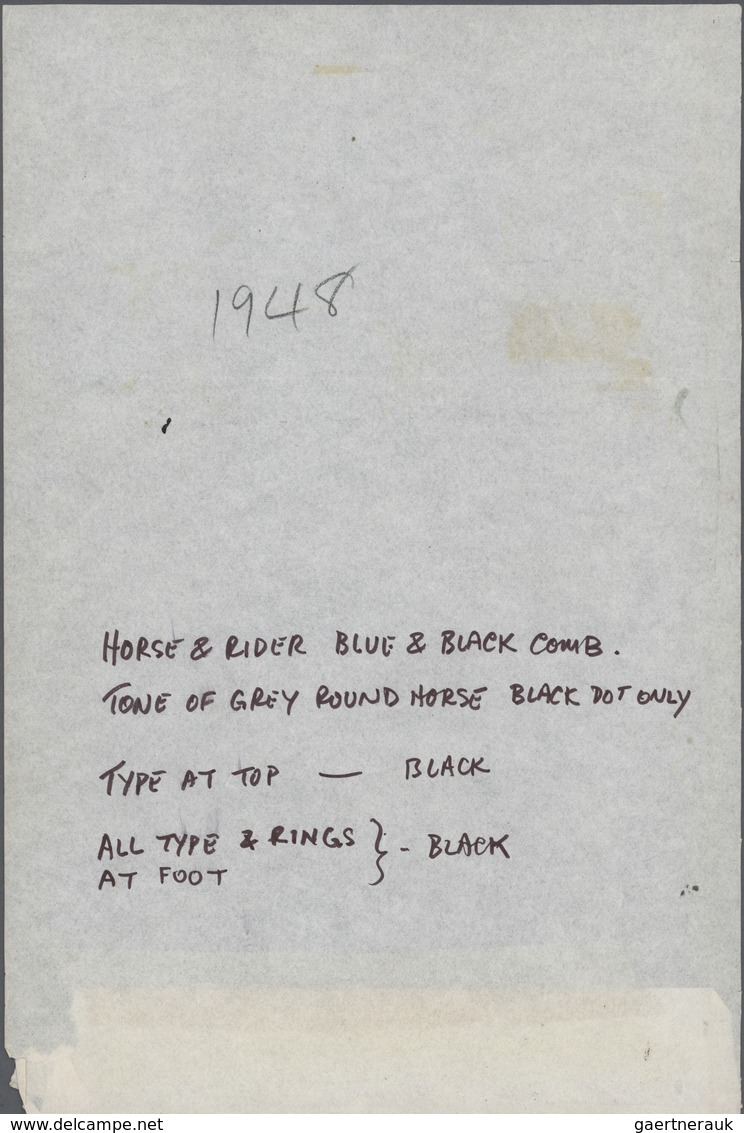 1948
HORSE & RIDER BLUE & BLACK COMB.
TONE OF GREY ROUND HORSE BLACK DOT ONLY
TYPE AT TOP — BLACK
ALL TYPE & RINGS } - BLACK
AT FOOT
www.delcampe.net
gaertnerauk